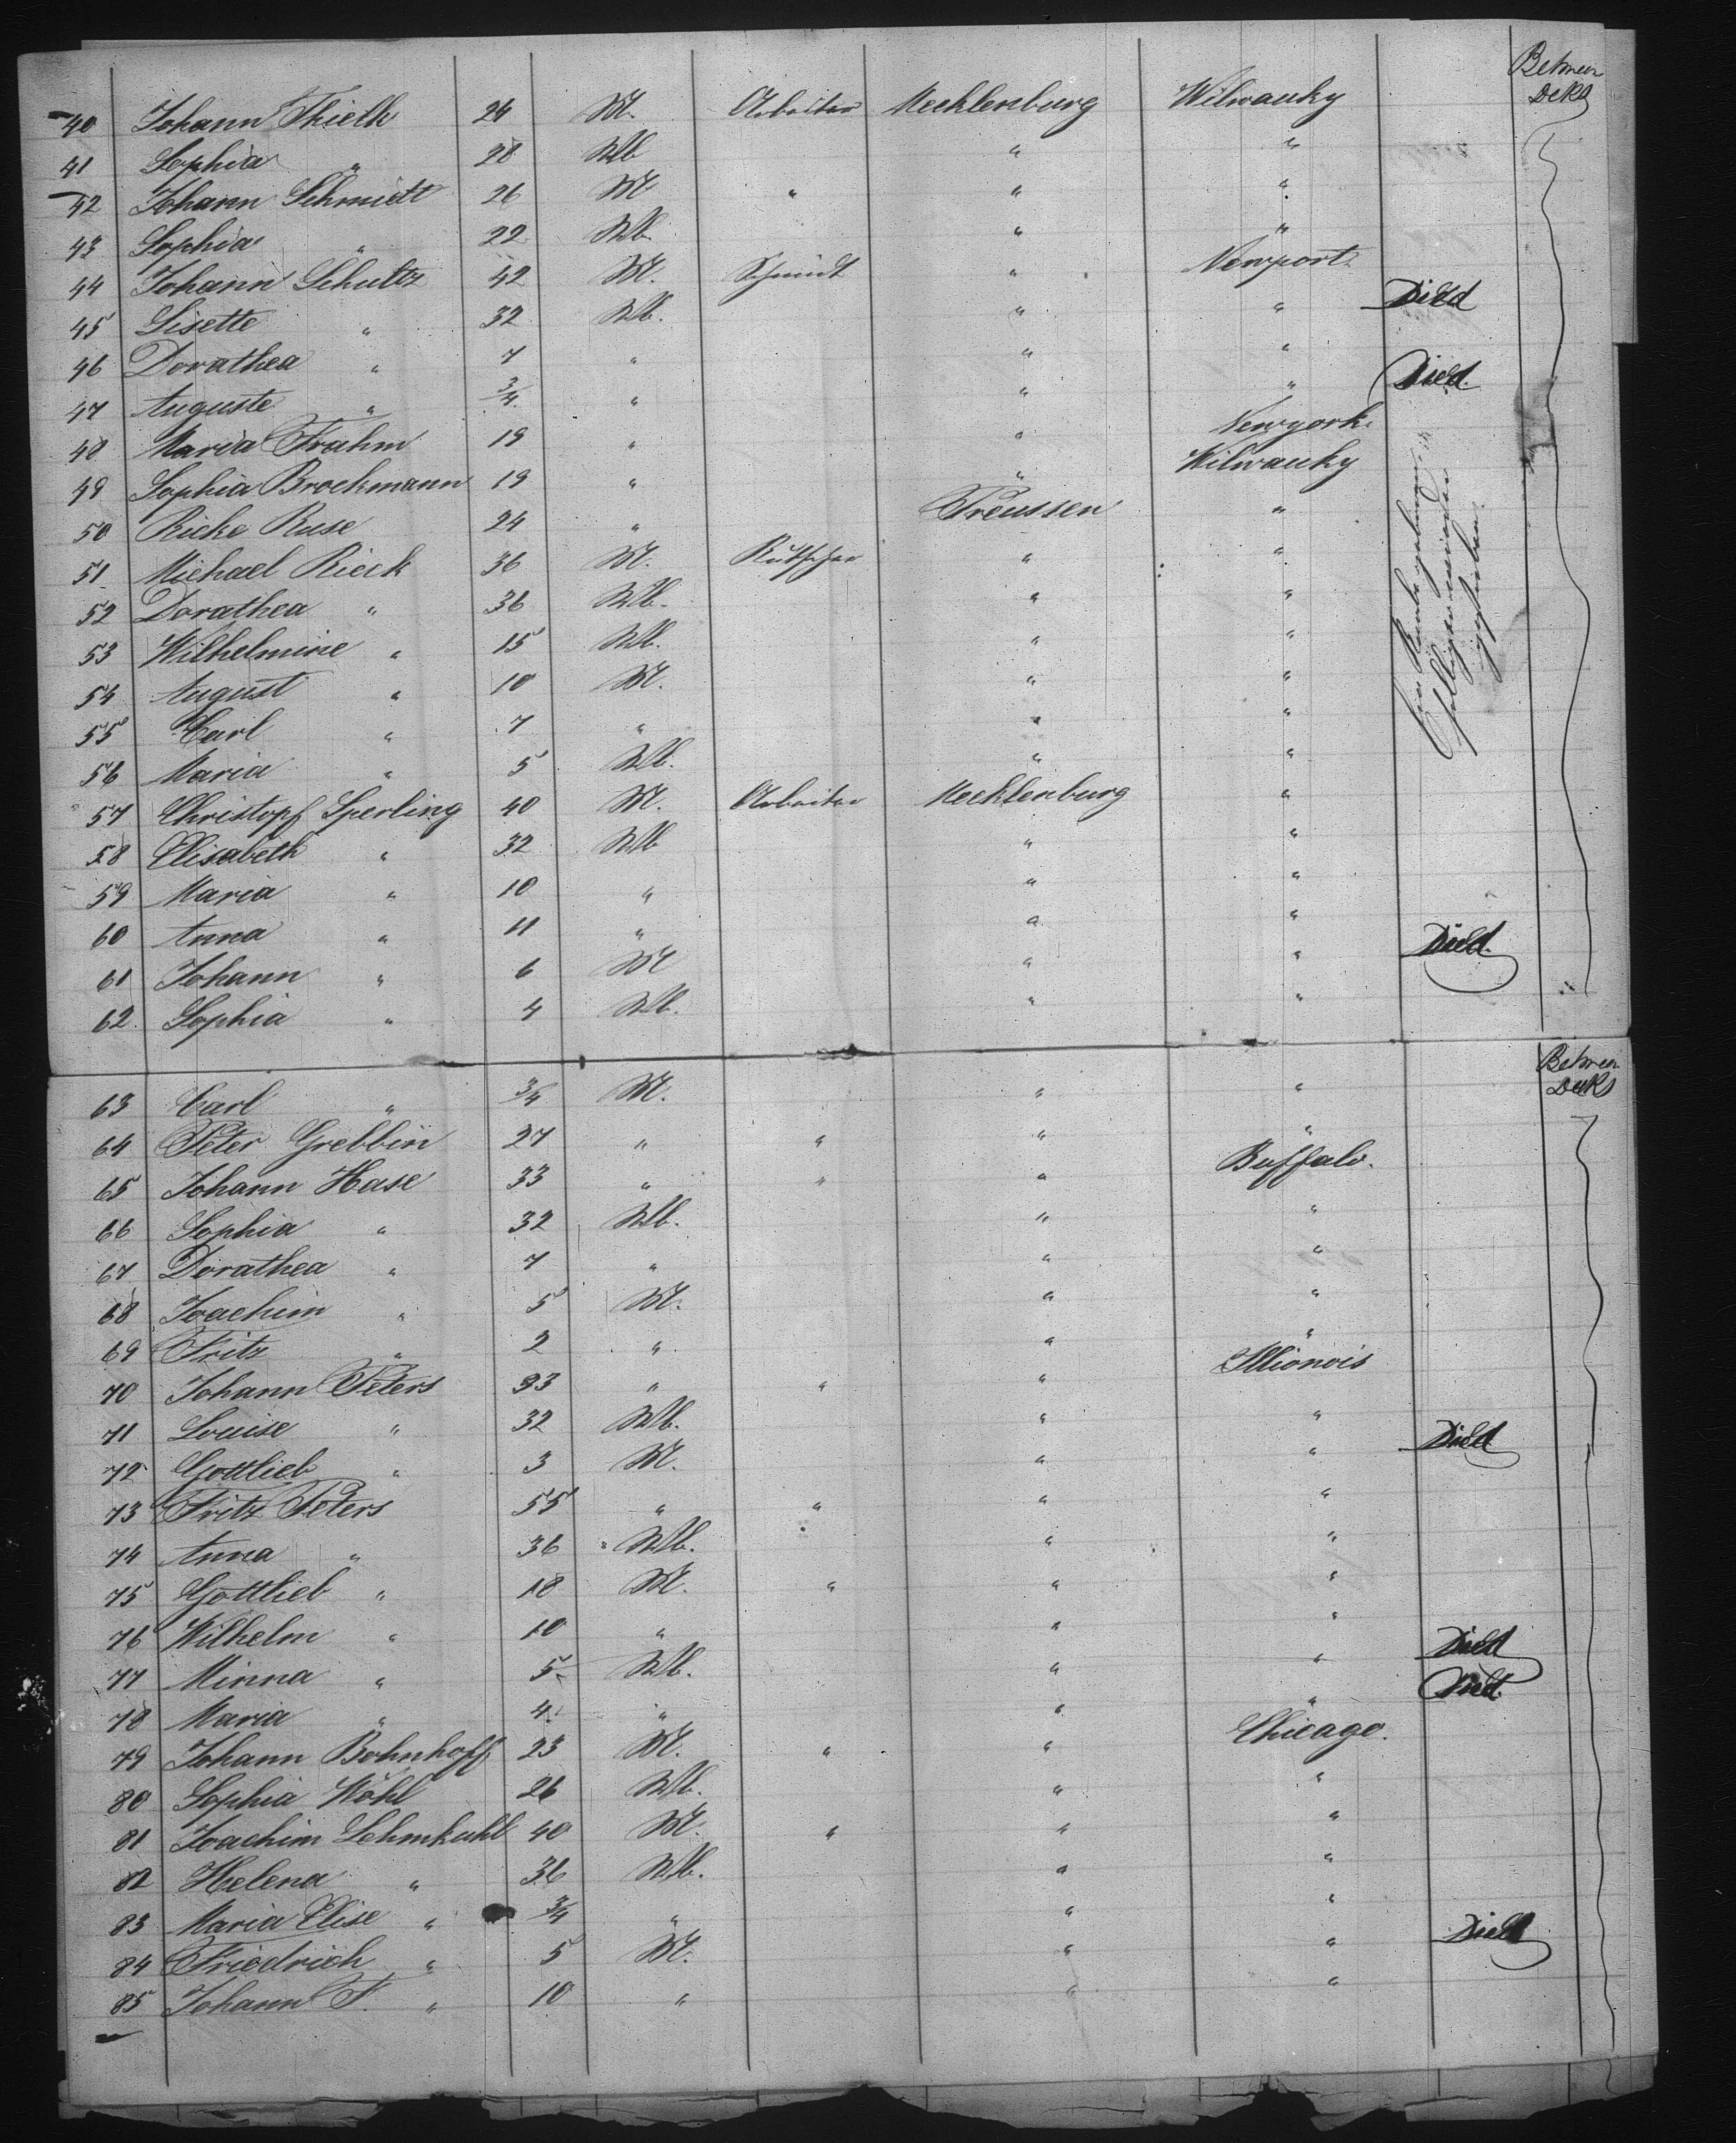 Between Deks
40 Johann Thielk 24 M. Arbeiter Mecklenburg Milwauky
41 Sophia " 28 Wb " "
42 Johann Schmidt 26 M " " "
43 Sophia " 22 Wb. " "
44 Johann Schultz 42 M. Schmidt " Newport
45 Lisette " 32 Wb. " " Died
46 Dorathea " 7 " " "
47 Auguste " 3/4 " " " Died.
48 Maria Frahm 19 " " Newyork.
49 Sophia Brockmann 19 " " Milwauky
50 Rieke Ruse 24 " Preussen "
51 Michael Rieck 36 M. Kutscher " "
52 Dorathea " 36 Wb. " "
53 Wilhelmine " 15 Wb. " "
54 August " 10 M. " "
55 Carl " 7 " " "
56 Maria " 5 Wb. " "
57 Christopf Sperling 40 M. Arbeiter Mecklenburg "
58 Elisabeth " 32 Wb " "
59 Maria " 10 " " "
60 Anna " 11 " " "
61 Johann " 6 M " " Died.
62 Sophia " 4 Wb. " "
Between Deks
63 Carl " 3/4 M. " "
64 Peter Grebbin 27 " " " "
65 Johann Hase 33 " " " Buffalo.
66 Sophia " 32 Wb. " "
67 Dorathea " 7 " " "
68 Joachim " 5 M. " "
69 Fritz " 2 " " "
70 Johann Peters 33 " " " Illionois
71 Louise " 32 Wb. " "
72 Gottlieb " 3 M. " " Died
73 Fritz Peters 55 " " " "
74 Anna " 36 Wb. " "
75 Gottlieb " 18 M. " " "
76 Wilhelm " 10 " " "
77 Minna " 5 Wb. " " Died
78 Maria " 4 " " " Died.
79 Johann Bohnhoff 23 M. " " Chicago.
80 Sophia Wöhl 26 Wb. " "
81 Joachim Lehmkuhl 40 M. " " "
82 Helena " 36 Wb. " "
83 Maria Elise " 3/4 " " "
84 Friedrich " 5 M. " " Died
85 Johann F. " 10 " " "